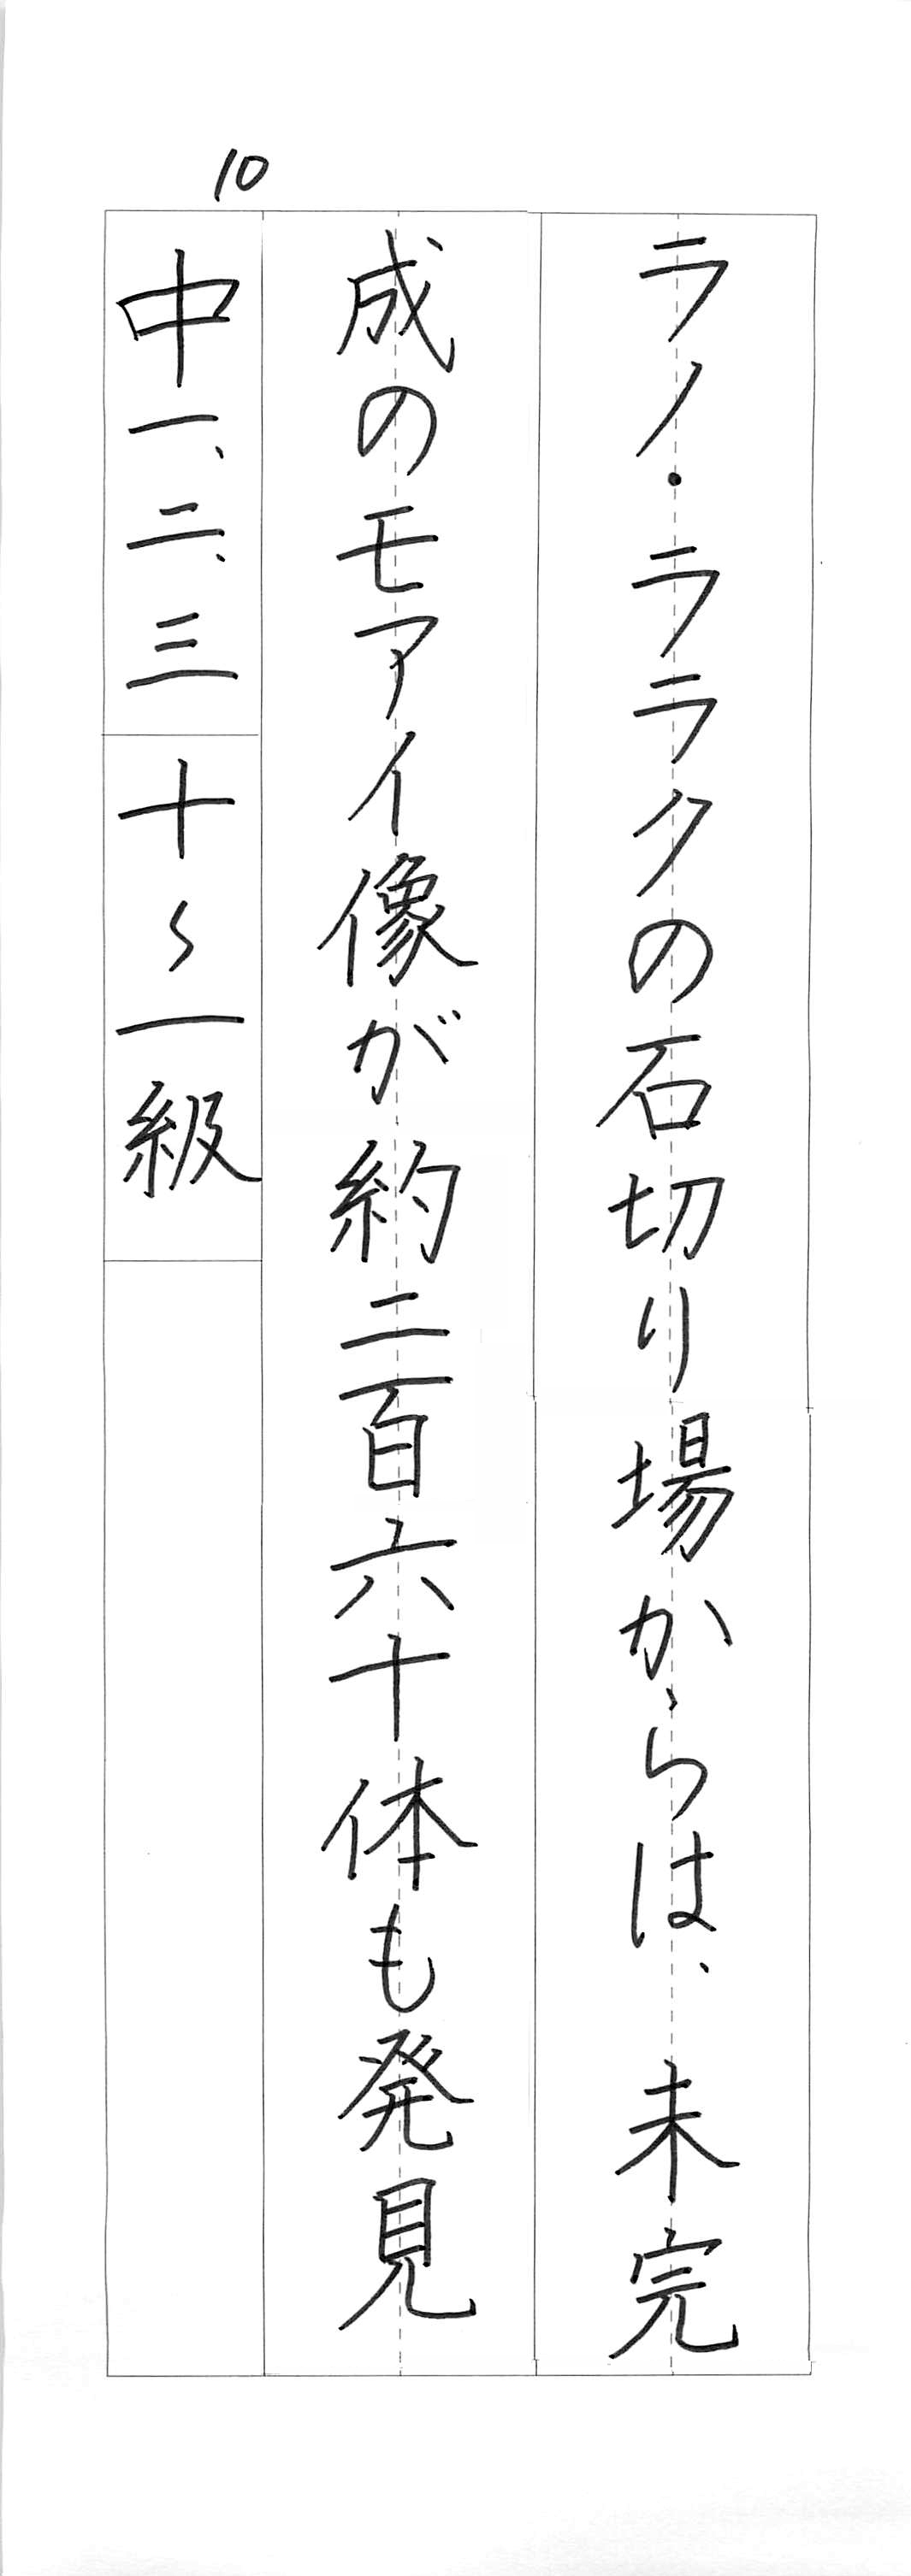 10
ラノ・ララクの石切り場からは、未完
成のモアイ像が約二百六十体も発見
中一、二、三
十〜一級